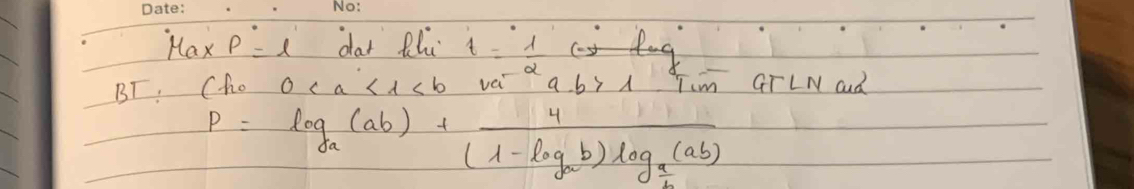 Date: No:
Max P = 1 đạt khi t = 1/2
BT: Cho 0 < a < 1 < b và a.b > 1. Tìm GTLN của
P = log_a (ab) + 4/((1 - log_a b) log_{a/b} (ab))